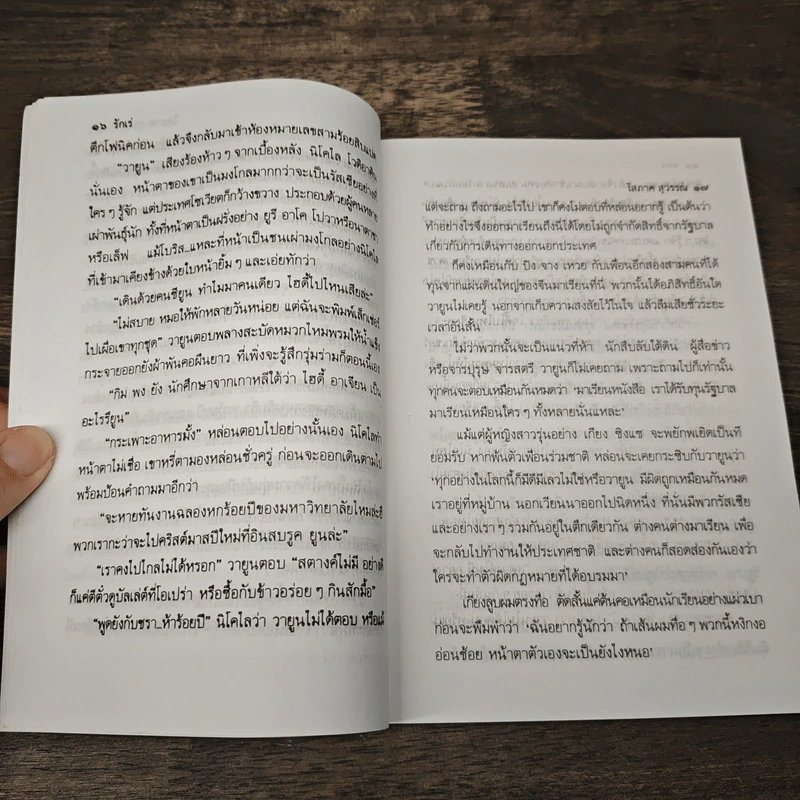 ๑๖ รักเร่
ตึกโฟนิคก่อน แล้วจึงกลับมาเข้าห้องหมายเลขสามร้อยสิบแปด
“วายูน” เสียงร้องห้าว ๆ จากเบื้องหลัง นิโคไล
นั่นเอง หน้าตาของเขาเป็นมงโกลมากกว่าจะเป็นรัสเซียอย่างที่
ใคร ๆ รู้จัก แต่ประเทศโซเวียตก็กว้างขวาง ประกอบด้วยผู้คนหลาย
เผ่าพันธุ์นัก ทั้งที่หน้าตาเป็นฝรั่งอย่าง ยูริ อาโค โปวาหรือนาตาชา
หรือเล็ฟ แม้โบริส...และที่หน้าเป็นชนเผ่ามงโกลอย่างนิโคไล
ที่เข้ามาเคียงข้างด้วยใบหน้ายิ้ม ๆ และเอ่ยทักว่า
“เดินด้วยคนซียูน ทำไมมาคนเดียว ไฮตี้ไปไหนเสียล่ะ”
“ไม่สบาย หมอให้พักหลายวันหน่อย แต่ฉันจะพิมพ์เล็กเชอร์
ไปเผื่อเขาทุกชุด” วายูนตอบพลางสะบัดหมวกไหมพรมให้น้ำแข็ง
กระจายออกยังผ้าพันคอผืนยาว ที่เพิ่งจะรู้สึกรุ่มร่ามก็ตอนนี้เอง
“กิม พง ยัง นักศึกษาจากเกาหลีใต้ว่า ไฮตี้ อาเจียน เป็น
อะไรรึยูน”
“กระเพาะอาหารมั้ง” หล่อนตอบไปอย่างนั้นเอง นิโคไลทำ
หน้าตาไม่เชื่อ เขาหรี่ตามองหล่อนชั่วครู่ ก่อนจะออกเดินตามไป
พร้อมป้อนคำถามมาอีกว่า
“จะหายทันงานฉลองหกร้อยปีของมหาวิทยาลัยไหมล่ะยี
พวกเรากะว่าจะไปคริสต์มาสปีใหม่ที่อินสบรูค ยูนล่ะ”
“เราคงไปไกลไม่ได้หรอก” วายูนตอบ “สตางค์ไม่มี อย่างดี
ก็แค่ตีตั๋วดูบัลเล่ต์ที่โอเปร่า หรือซื้อกับข้าวอร่อย ๆ กินสักมื้อ”
“พูดยังกับชรา...ห้าร้อยปี” นิโคไลว่า วายูนไม่ได้ตอบ หรือแม้
โสภาค สุวรรณ ๑๗
แต่จะถาม ถึงถามอะไรไป เขาก็คงไม่ตอบที่หล่อนอยากรู้ เป็นต้นว่า
ทำอย่างไรจึงออกมาเรียนถึงนี่ได้โดยไม่ถูกจำกัดสิทธิ์จากรัฐบาล
เกี่ยวกับการเดินทางออกนอกประเทศ
ก็คงเหมือนกับ ปิง จาง เหวย กับเพื่อนอีกสองสามคนที่ได้
ทุนจากแผ่นดินใหญ่ของจีนมาเรียนที่นี่ พวกนั้นได้อภิสิทธิ์อันใด
วายูนไม่เคยรู้ นอกจากเก็บความสงสัยไว้ในใจ แล้วลืมเสียชั่วระยะ
เวลาอันสั้น
ไม่ว่าพวกนั้นจะเป็นแนวที่ห้า นักสืบลับใต้ดิน ผู้สื่อข่าว
หรือจารบุรุษ จารสตรี วายูนก็ไม่เคยถาม เพราะถามไปก็เท่านั้น
ทุกคนจะตอบเหมือนกันหมดว่า ‘มาเรียนหนังสือ เราได้รับทุนรัฐบาล
มาเรียนเหมือนใคร ๆ ทั้งหลายนั่นแหละ’
แม้แต่ผู้หญิงสาวรุ่นอย่าง เกียง ซิงแซ จะพยักพเยิดเป็นที
ยอมรับ หากพ้นตัวเพื่อนร่วมชาติ หล่อนจะเคยกระซิบกับวายูนว่า
‘ทุกอย่างในโลกนี้ก็มีดีมีเลวไม่ใช่หรือวายูน มีผิดถูกเหมือนกันหมด
เราอยู่ที่หมู่บ้าน นอกเวียนนาออกไปนิดหนึ่ง ที่นั่นมีพวกรัสเซีย
และอย่างเรา ๆ รวมกันอยู่ในตึกเดียวกัน ต่างคนต่างมาเรียน เพื่อ
จะกลับไปทำงานให้ประเทศชาติ และต่างคนก็สอดส่องกันเองว่า
ใครจะทำตัวผิดกฎหมายที่ได้อบรมมา’
เกียงลูบผมตรงทื่อ ตัดสั้นแค่ต้นคอเหมือนนักเรียนอย่างแผ่วเบา
ก่อนจะพึมพำว่า ‘ฉันอยากรู้นักว่า ถ้าเส้นผมทื่อ ๆ พวกนี้หงิกงอ
อ่อนช้อย หน้าตาตัวเองจะเป็นยังไงหนอ’